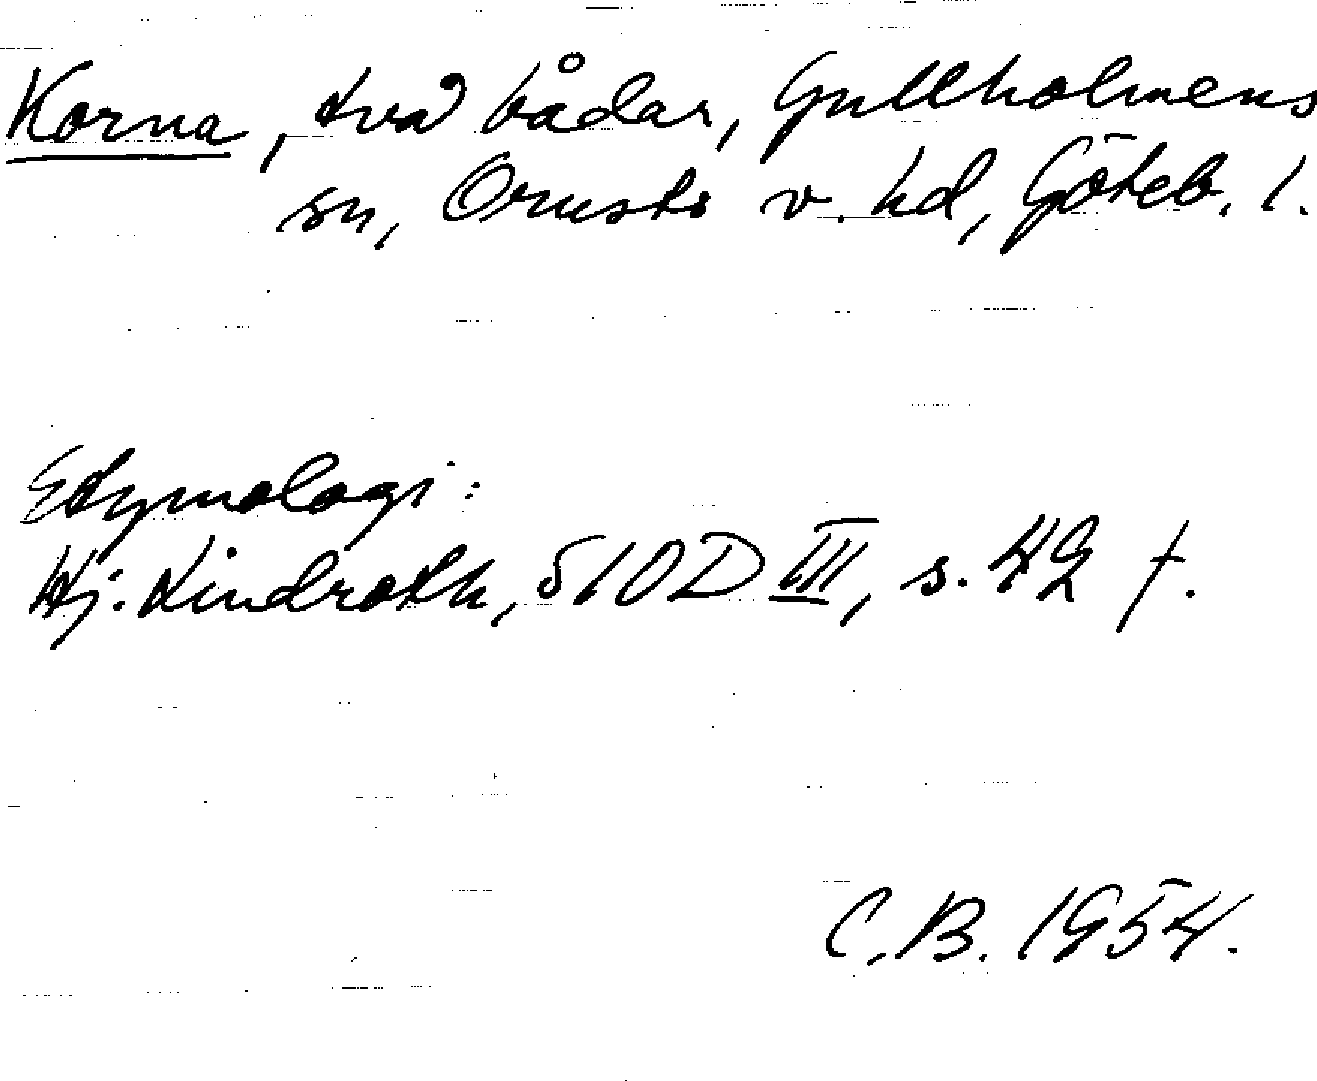 Korna, två bådar, Gullholmens
sn, Orusts v. hd, Göteb. l.
Etymologi:
Hj. Lindroth, SIOD III, s. 42 f.
C.B. 1954.